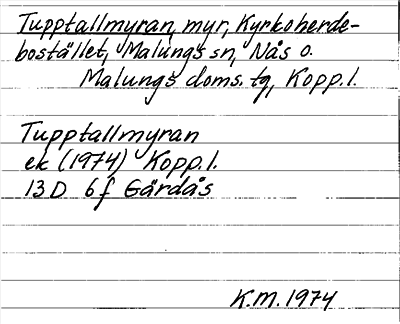 Tupptallmyran, myr, Kyrkoherde-
bostället, Malungs sn, Nås o.
Malungs doms. tg, Kopp. l.
Tupptallmyran
ek (1974) Kopp. l.
13D 6f Gärdås
K.M. 1974